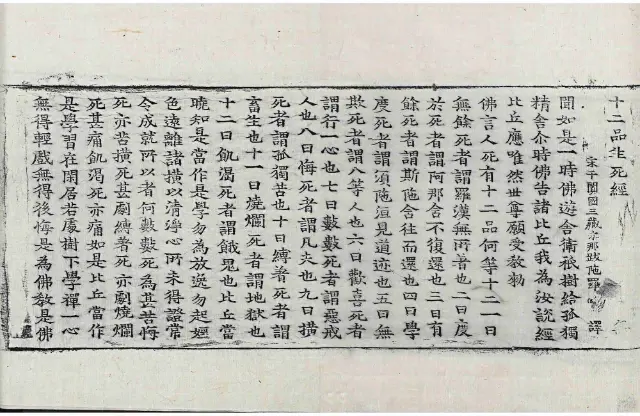 十二品生死經
宋于闐國三藏求那跋陁羅 譯
聞如是一時佛遊舍衛祇樹給孤獨
精舍尒時佛告諸比丘我為汝說經
比丘應唯然世尊願受教勅
佛言人死有十二品何等十二一曰
無餘死者謂羅漢無所著也二曰度
於死者謂阿那含不復還也三曰有
餘死者謂斯陁含往而還也四曰學
度死者謂須陁洹見道迹也五曰無
欺死者謂八等人也六曰歡喜死者
謂行一心也七曰數數死者謂惡戒
人也八曰悔死者謂凡夫也九曰橫
死者謂孤獨苦也十曰縛著死者謂
畜生也十一曰燒爛死者謂地獄也
十二曰飢渴死者謂餓鬼也比丘當
曉知是當作是學勿為放逸勿起婬
色遠離諸橫以清淨心所未得證常
令成就所以者何數數死為甚苦悔
死亦苦橫死甚劇縛著死亦劇燒爛
死甚痛飢渴死亦痛如是比丘當作
是學習在閑居若處樹下學禪一心
無得輕戲無得後悔是為佛教是佛